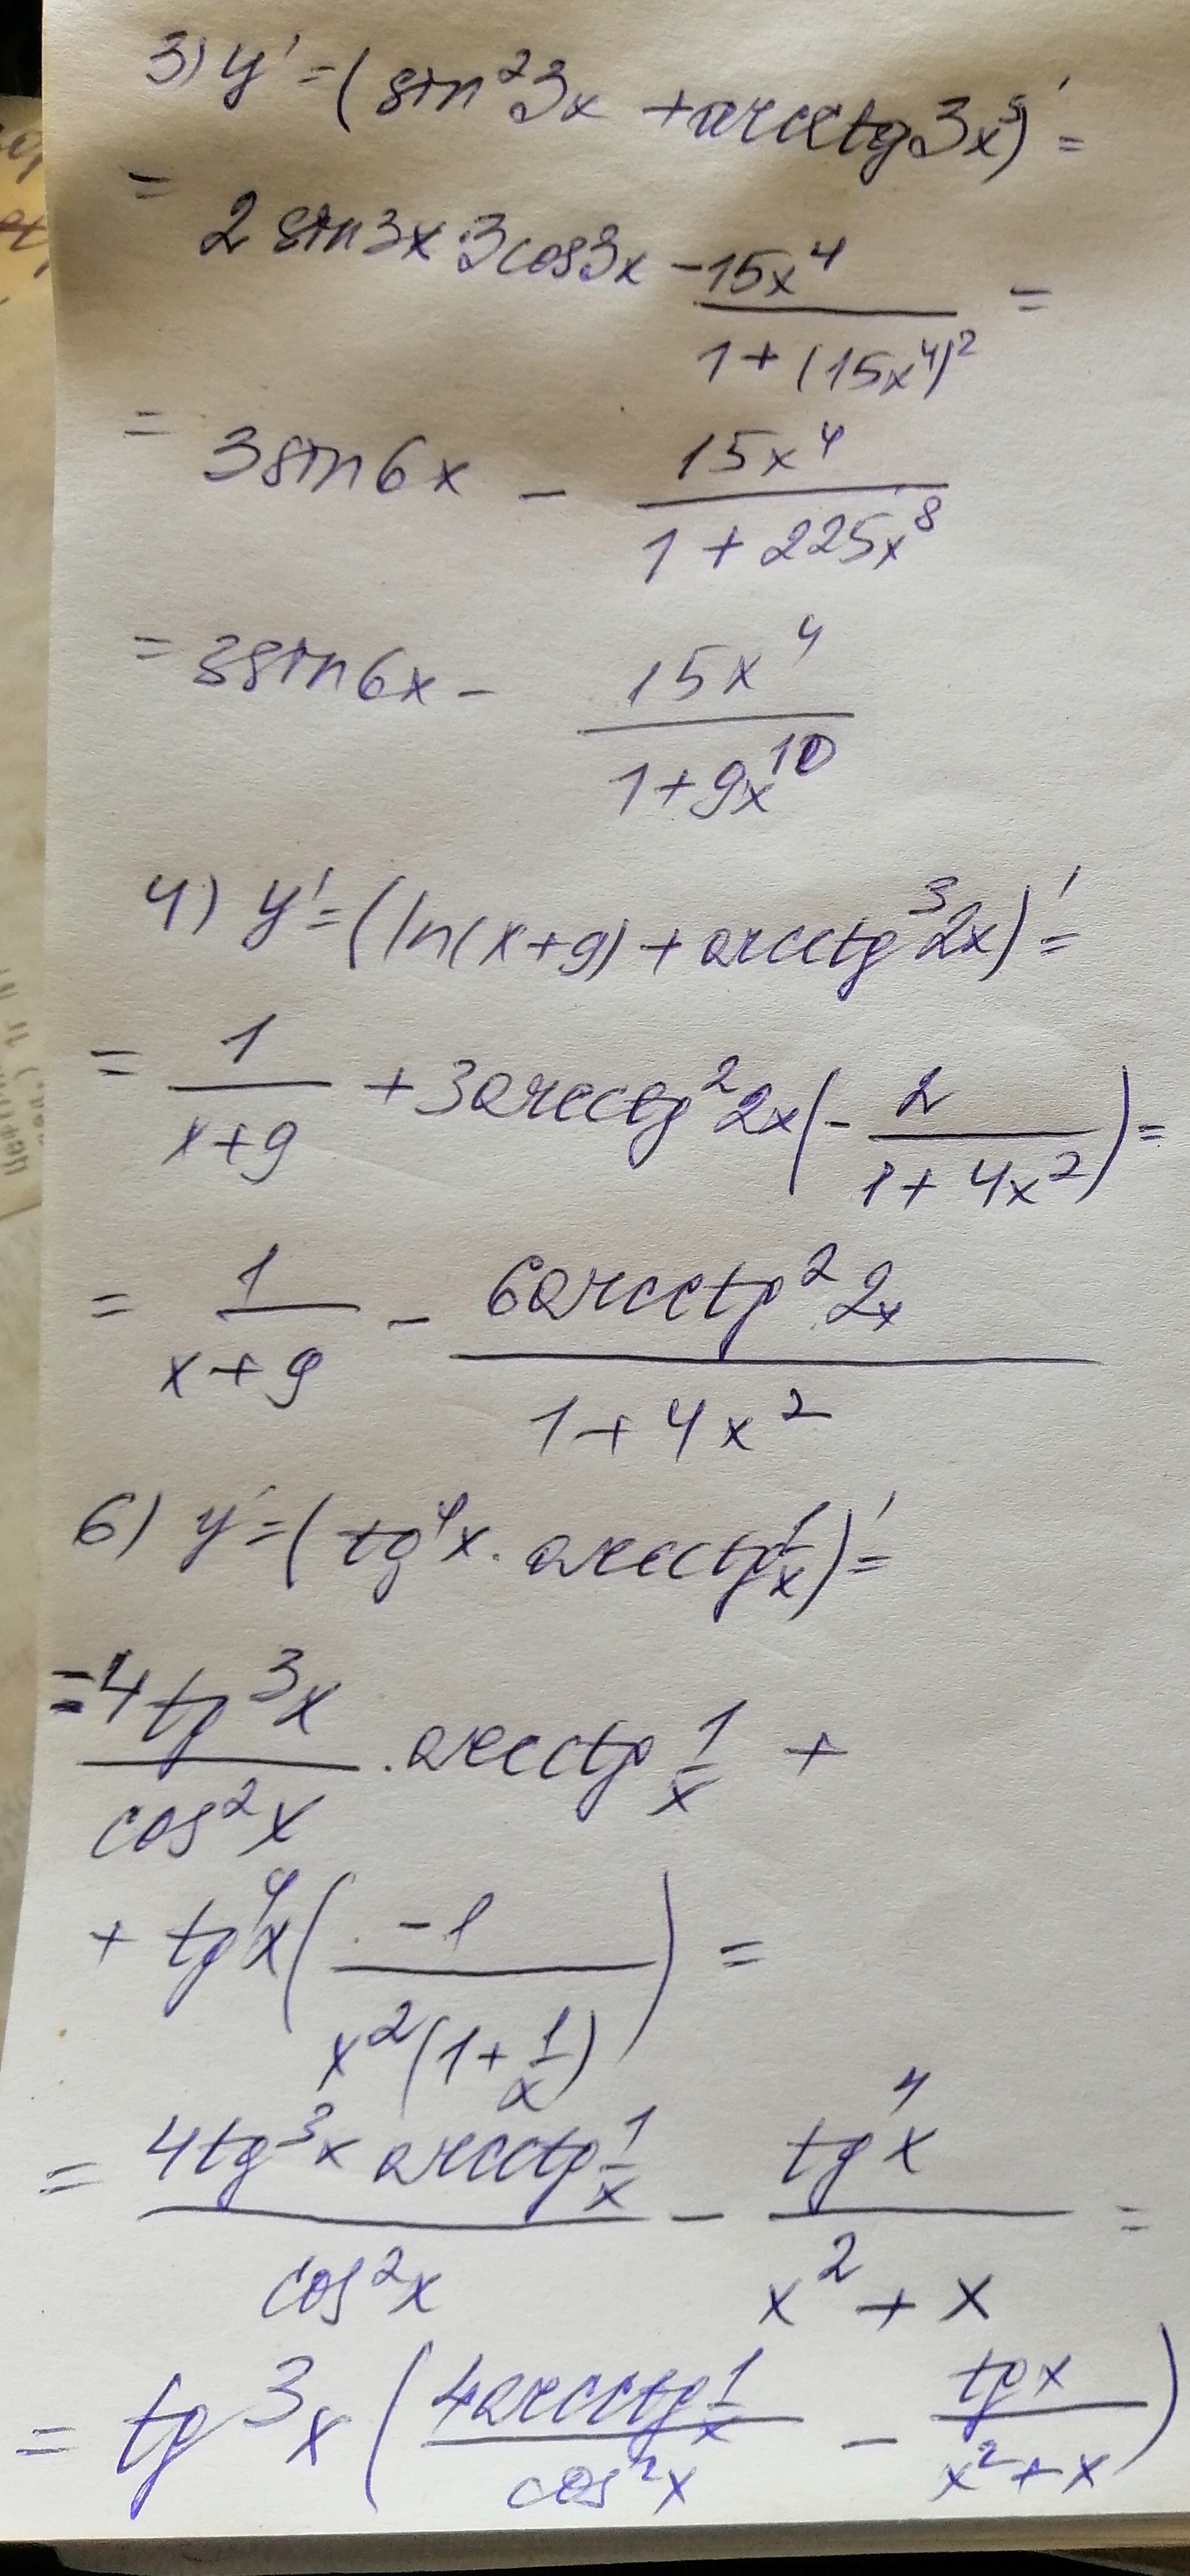 3) y' = (sin²3x + arcctg3x⁵)' =
= 2 sin3x · 3cos3x - 15x⁴ / (1 + (15x⁴)²) =
= 3sin6x - 15x⁴ / (1 + 225x⁸)
= 3sin6x - 15x⁴ / (1 + 9x¹⁰)
4) y' = (ln(x+9) + arcctg³2x)' =
= 1/(x+9) + 3arcctg²2x(- 2/(1 + 4x²)) =
= 1/(x+9) - 6arcctg²2x / (1 + 4x²)
6) y' = (tg⁴x · arcctg 1/x)' =
= 4tg³x / cos²x · arcctg 1/x +
+ tg⁴x( -1 / (x²(1 + 1/x)) ) =
= 4tg³x arcctg 1/x / cos²x - tg⁴x / (x² + x) =
= tg³x ( 4arcctg 1/x / cos²x - tgx / (x² + x) )